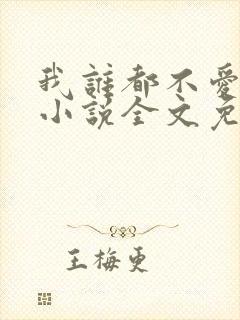 我誰都不愛
小說全文免
王梅更